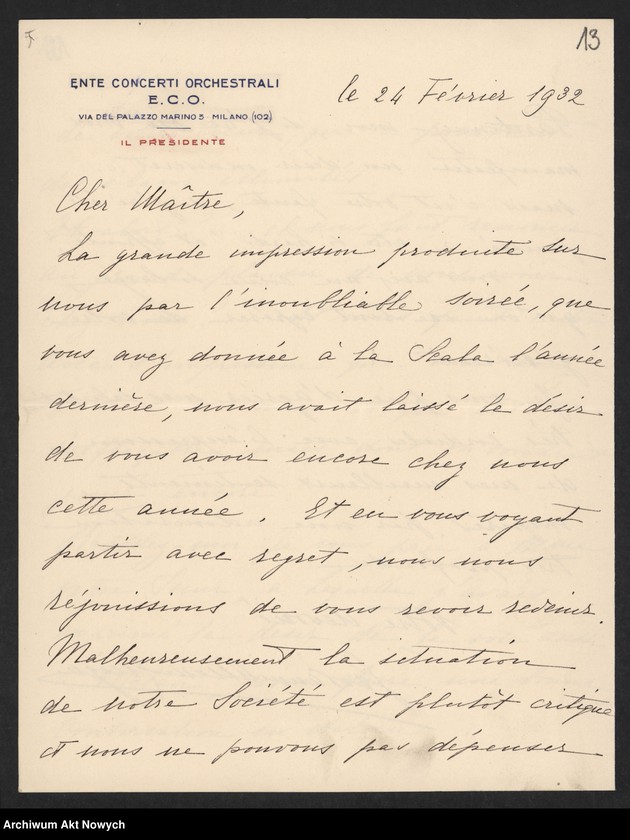 13
ENTE CONCERTI ORCHESTRALI
E.C.O.
VIA DEL PALAZZO MARINO 3 - MILANO (102)
IL PRESIDENTE
le 24 Février 1932
Cher Maître,
La grande impression produite sur
nous par l'inoubliable soirée, que
vous avez donnée à la Scala l'année
dernière, nous avait laissé le désir
de vous avoir encore chez nous
cette année. Et en vous voyant
partir avec regret, nous nous
réjouissions de vous revoir revenir.
Malheureusement la situation
de notre Société est plutôt critique
et nous ne pouvons pas dépenser
Archiwum Akt Nowych